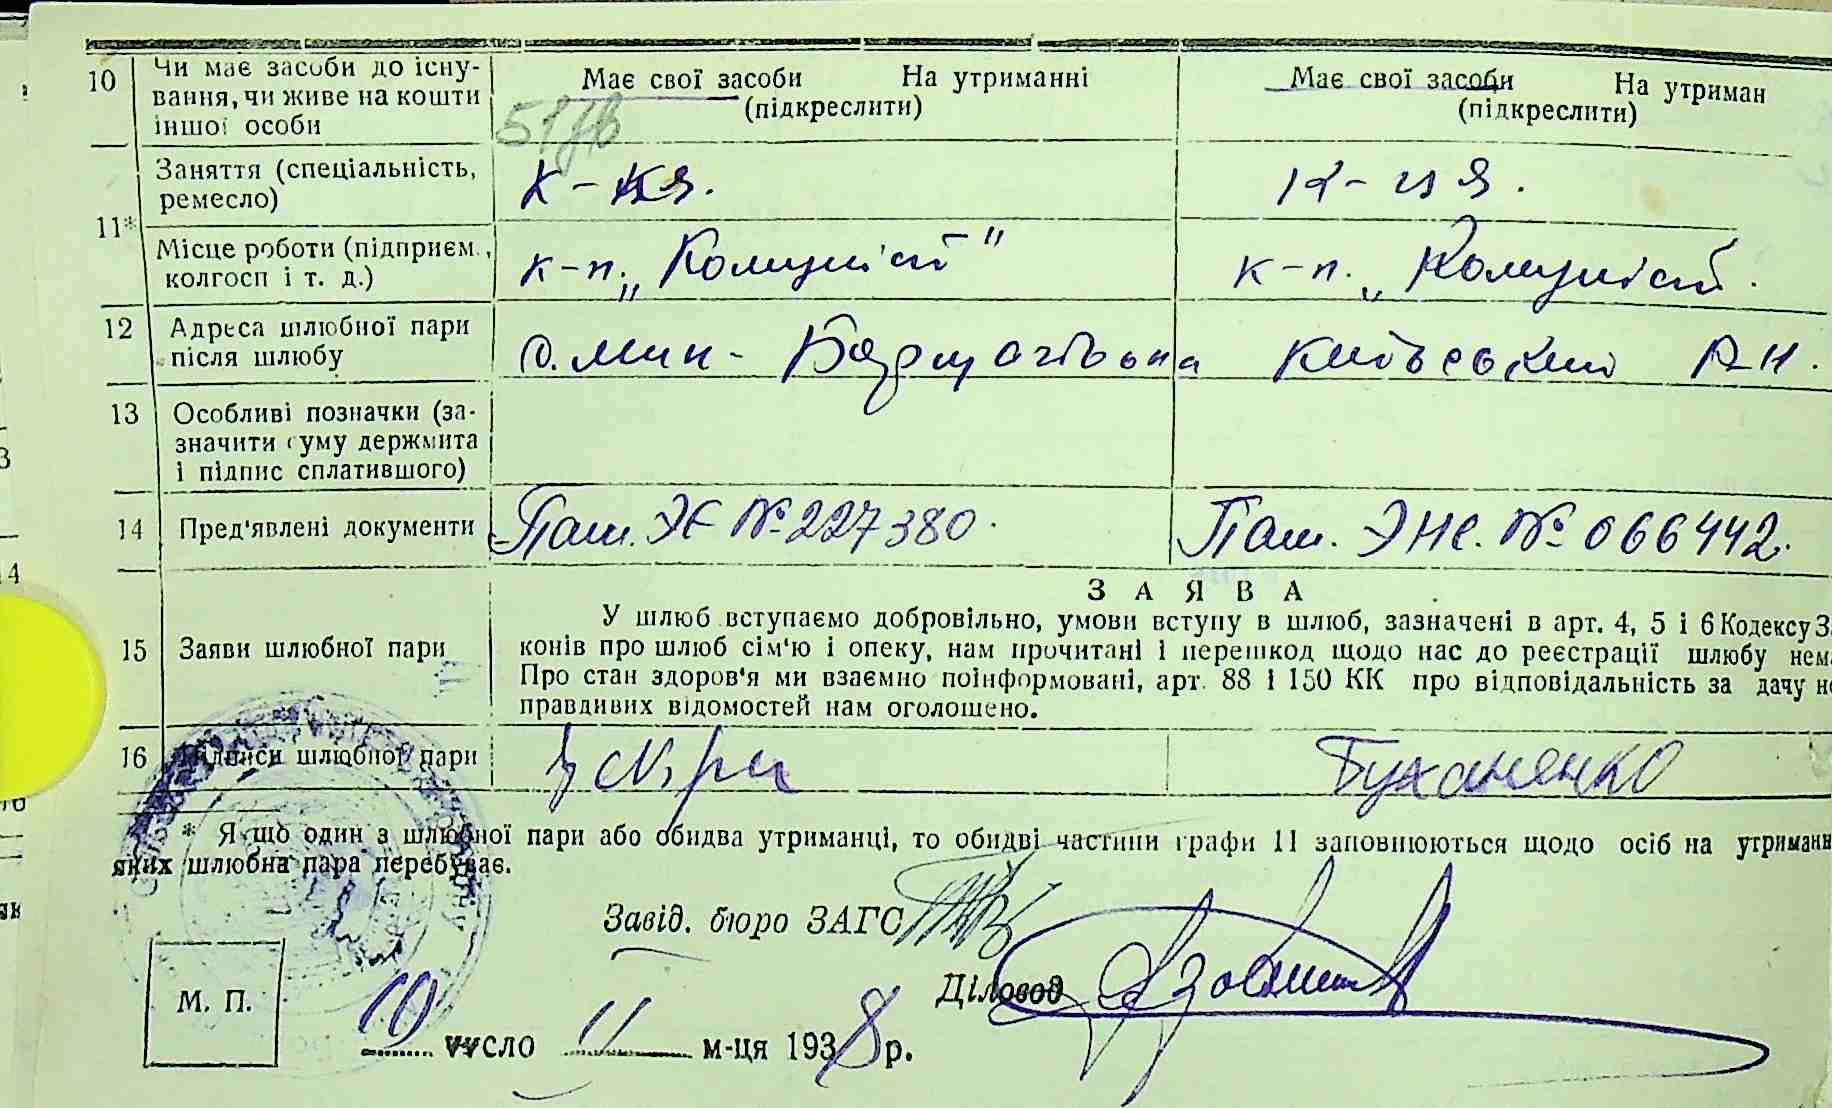 10 Чи має засоби до існу- Має свої засоби На утриманні Має свої засоби На утриман
вання, чи живе на кошти (підкреслити) (підкреслити)
іншої особи
Заняття (спеціальність, к-ця. к-ця.
ремесло)
11*
Місце роботи (підприєм., к-п. „Комуніст" к-п. „Комуніст.
колгосп і т. д.)
12 Адреса шлюбної пари
після шлюбу Київський р-н.
13 Особливі позначки (за-
значити суму держмита
і підпис сплатившого)
14 Пред'явлені документи Паш. ЭЕ № 227380. Паш. ЭНС. № 066442.
З А Я В А
У шлюб вступаємо добровільно, умови вступу в шлюб, зазначені в арт. 4, 5 і 6 Кодексу З
15 Заяви шлюбної пари конів про шлюб сім'ю і опеку, нам прочитані і перешкод щодо нас до реєстрації шлюбу нема
Про стан здоров'я ми взаємно поінформовані, арт. 88 і 150 КК про відповідальність за дачу не
правдивих відомостей нам оголошено.
16 Підписи шлюбної пари Буханенко
* Якщо один з шлюбної пари або обидва утриманці, то обидві частини графи 11 заповнюються щодо осіб на утриманн
яких шлюбна пара перебуває.
Завід. бюро ЗАГС
Діловод
М. П.
10 число 11 м-ця 1938 р.